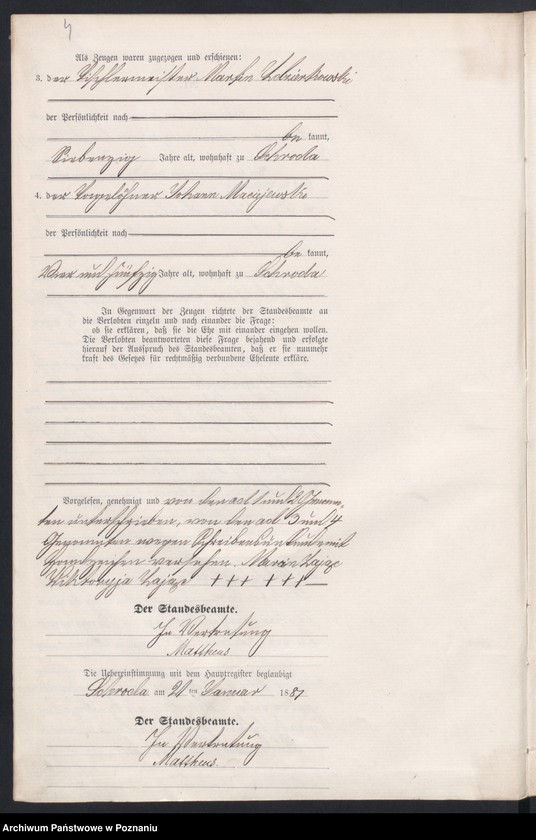 4
Als Zeugen waren zugezogen und erschienen:
3. der Tischlermeister Martin
der Persönlichkeit nach
be kannt,
Siebenzig Jahre alt, wohnhaft zu Schroda
4. der Tagelöhner Johann Maciejewski
der Persönlichkeit nach
be kannt,
Vier und fünfzig Jahre alt, wohnhaft zu Schroda
In Gegenwart der Zeugen richtete der Standesbeamte an
die Verlobten einzeln und nach einander die Frage:
ob sie erklären, daß sie die Ehe mit einander eingehen wollen.
Die Verlobten beantworteten diese Frage bejahend und erfolgte
hierauf der Ausspruch des Standesbeamten, daß er sie nunmehr
kraft des Gesetzes für rechtmäßig verbundene Eheleute erkläre.
Vorgelesen, genehmigt und von den ad 1 und 2 Genann-
ten unterschrieben, von den ad 3 und 4
Genannten wegen Schreibensunkunde mit
Handzeichen versehen. Marcin Zając
Wiktoryja Zając +++ +++
Der Standesbeamte.
In Vertretung
Mattheus
Die Uebereinstimmung mit dem Hauptregister beglaubigt
Schroda am ten Januar 1881
Der Standesbeamte.
In Vertretung
Mattheus.
Archiwum Państwowe w Poznaniu